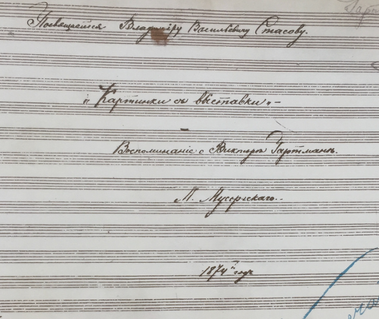 Посвящается Владиміру Васильевичу Стасову.
„Картинки съ выставки“ –
Воспоминаніе о Викторѣ Гартманѣ.
М. Мусоргскаго.
1874 годъ